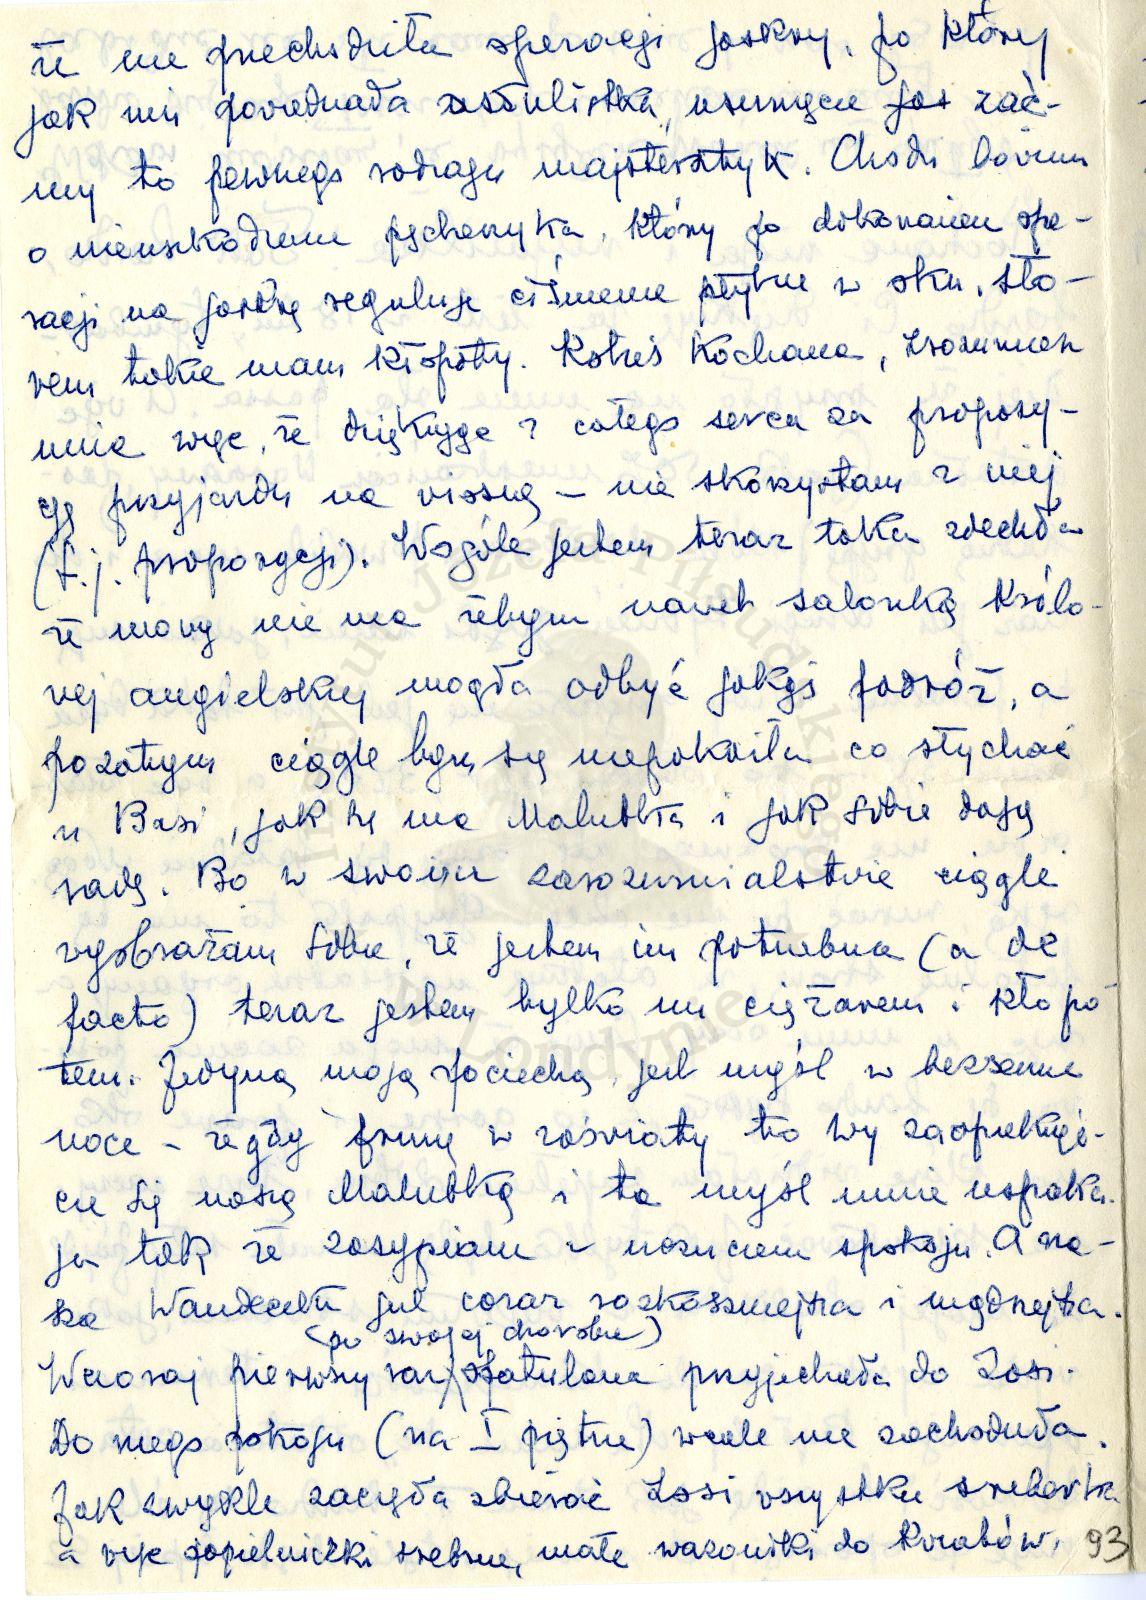 że nie przechodziła operacji jaskry, po której
jak mi powiedziała okulistka, usunięcie zać-
my to pewnego rodzaju majstersztyk. Chodzi bowiem
o nieuszkodzenie pęcherzyka, który po dokonaniu ope-
racji na jaskrę reguluje ciśnienie płynne w oku. Sło-
wem takie mam kłopoty. Kotuś Kochana, zrozumiesz
mnie więc, że dziękuję z całego serca za propozy-
cję przyjazdu na wiosnę – nie skorzystam z niej
(t.j. propozycji). Wogóle jestem teraz taka zdechła
że mowy nie ma żebym nawet salonką królo-
wej angielskiej mogła odbyć jakąś podróż, a
pozatym ciągle bym się niepokoiła co słychać
u Basi, jak się ma Malutka i jak sobie dają
radę. Bo w swoim zarozumialstwie ciągle
wyobrażam sobie, że jestem im potrzebna (a de
facto) teraz jestem tylko im ciężarem i kłopo
tem. Jedyną moją pociechą jest myśl w bezsenne
noce – że gdy frunę w zaświaty to Wy zaopiekuje-
cie się naszą Malutką i ta myśl mnie uspaka-
ja tak że zasypiam z uczuciem spokoju. A na-
sza Wandeczka jest coraz rozkoszniejsza i mądrzejsza.
(po swojej chorobie)
Wczoraj pierwszy raz opatulona przyjechała do Zosi.
Do mego pokoju (na I piętrze) wcale nie zachodziła.
Jak zwykle zaczęła zbierać Zosi wszystkie sreberka
a więc popielniczki srebrne, małe wazoniki do kwiatów,
93
Instytut Józefa Piłsudskiego
w Londynie